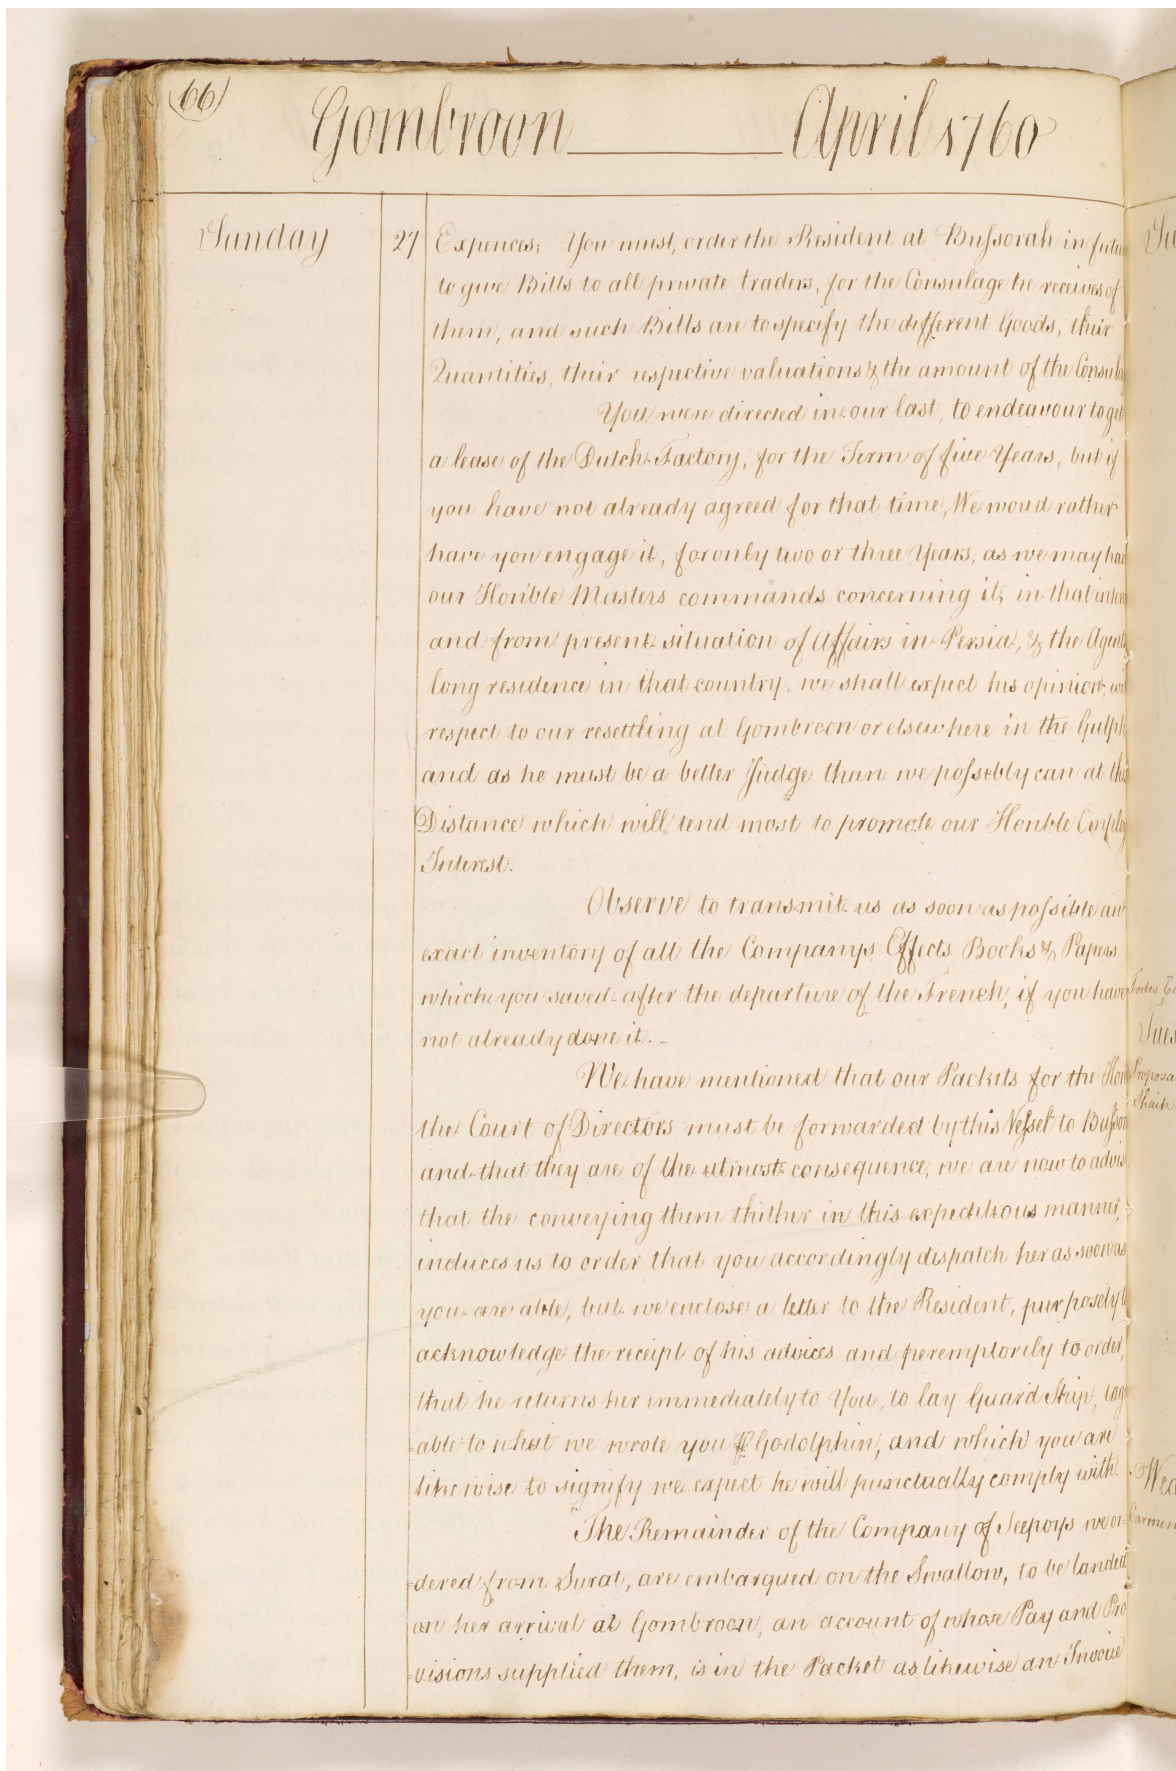 66
Gombroon April 1760
Sunday 27 Expences; You must, order the Resident at Bussorah in futu
to give Bills to all private traders, for the Consulage he receives of
them, and such Bills are to specify the different Goods, their
Quantities, their respective valuations & the amount of the Consula
You were directed in our last, to endeavour to get
a lease of the Dutch Factory, for the Term of five Years, but if
you have not already agreed for that time, We woud rather
have you engage it, for only two or three Years, as we may hav
our Hon'ble Masters commands concerning it, in that inter
and from present situation of Affairs in Persia, & the Agents
long residence in that country, we shall expect his opinion, wi
respect to our resettling at Gombroon or elsewhere in the Gulph
and as he must be a better Judge than we possibly can at this
Distance which will tend most to promote our Honble Employ
Interest.
Observe to transmit us as soon as possible an
exact inventory of all the Companys Effects Books & Papers
which you saved after the departure of the French, if you have
not already done it.
We have mentioned that our Packets for the Hon
the Court of Directors must be forwarded by this Vessel to Bussor
and that they are of the utmost consequence, we are now to advis
that the conveying them thither in this expeditious manner,
induces us to order that you accordingly dispatch her as soon as
you are able, but we enclose a letter to the Resident, purposely t
acknowledge the receipt of his advices and peremptorily to order,
that he returns her immediately to You, to lay Guard Ship, ag
able to what we wrote you ⅌ Godolphin, and which you are
likewise to signify we expect he will punctually comply with.
The Remainder of the Company of Seepoys we or-
dered from Surat, are embarqued on the Swallow, to be landed
on her arrival at Gombroon, an account of whose Pay and Pro
visions supplied them, is in the Packet as likewise an Invoice
Su
Tues
Proposa
Shaik
Wed